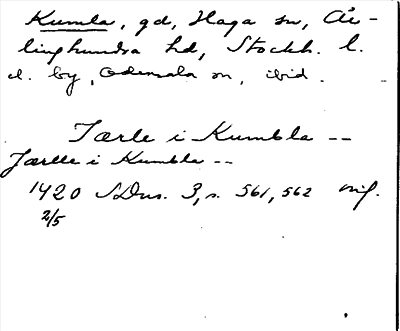 Kumla, gd, Haga sn, Är-
linghundra hd, Stockh. l.
el. by, Odensala sn, ibid.
Jærle i Kumbla --
Jærlle i Kumble --
1420 SDns. 3, s. 561, 562 orig.
2/5